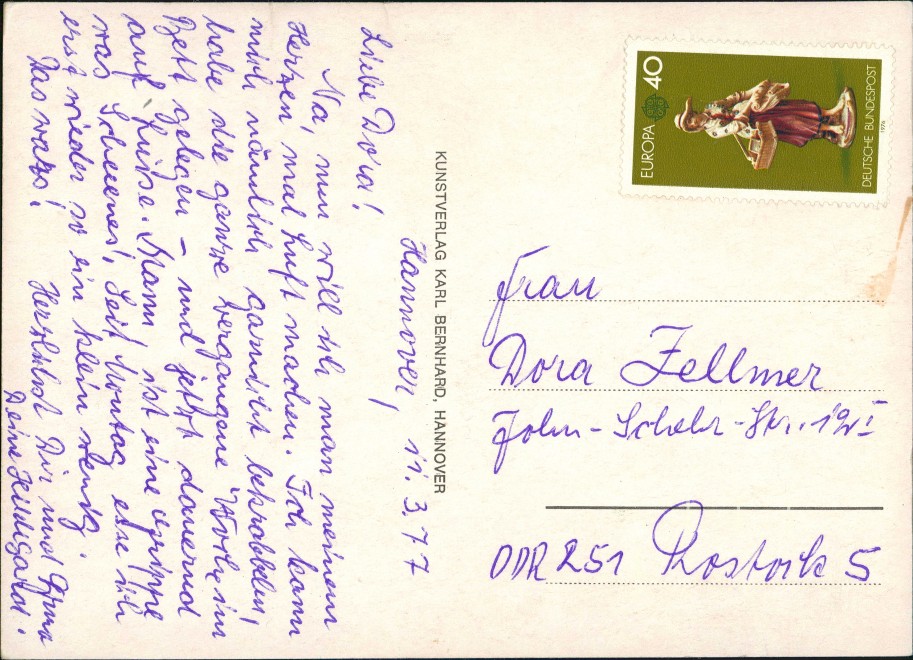 Hannover, 11.3.77
Liebe Dora!
Na, nun will ich man meinem
Herzen mal Luft machen. Ich kann
mich nämlich garnicht bekrabbeln,
habe die ganze vergangene Woche im
Bett gelegen – und jetzt dauernd
auf Luise. Mann ist eine Grippe
was Scheenes! Seit Montag esse ich
erst wieder so ein klein wenig.
Das wars! Herzlichst Dir und
Deine Hildegard.
KUNSTVERLAG KARL BERNHARD, HANNOVER
EUROPA 40
DEUTSCHE BUNDESPOST
1976
Frau
Dora Fellmer
John-Schehr-Str. 12 I
DDR 251 Rostock 5